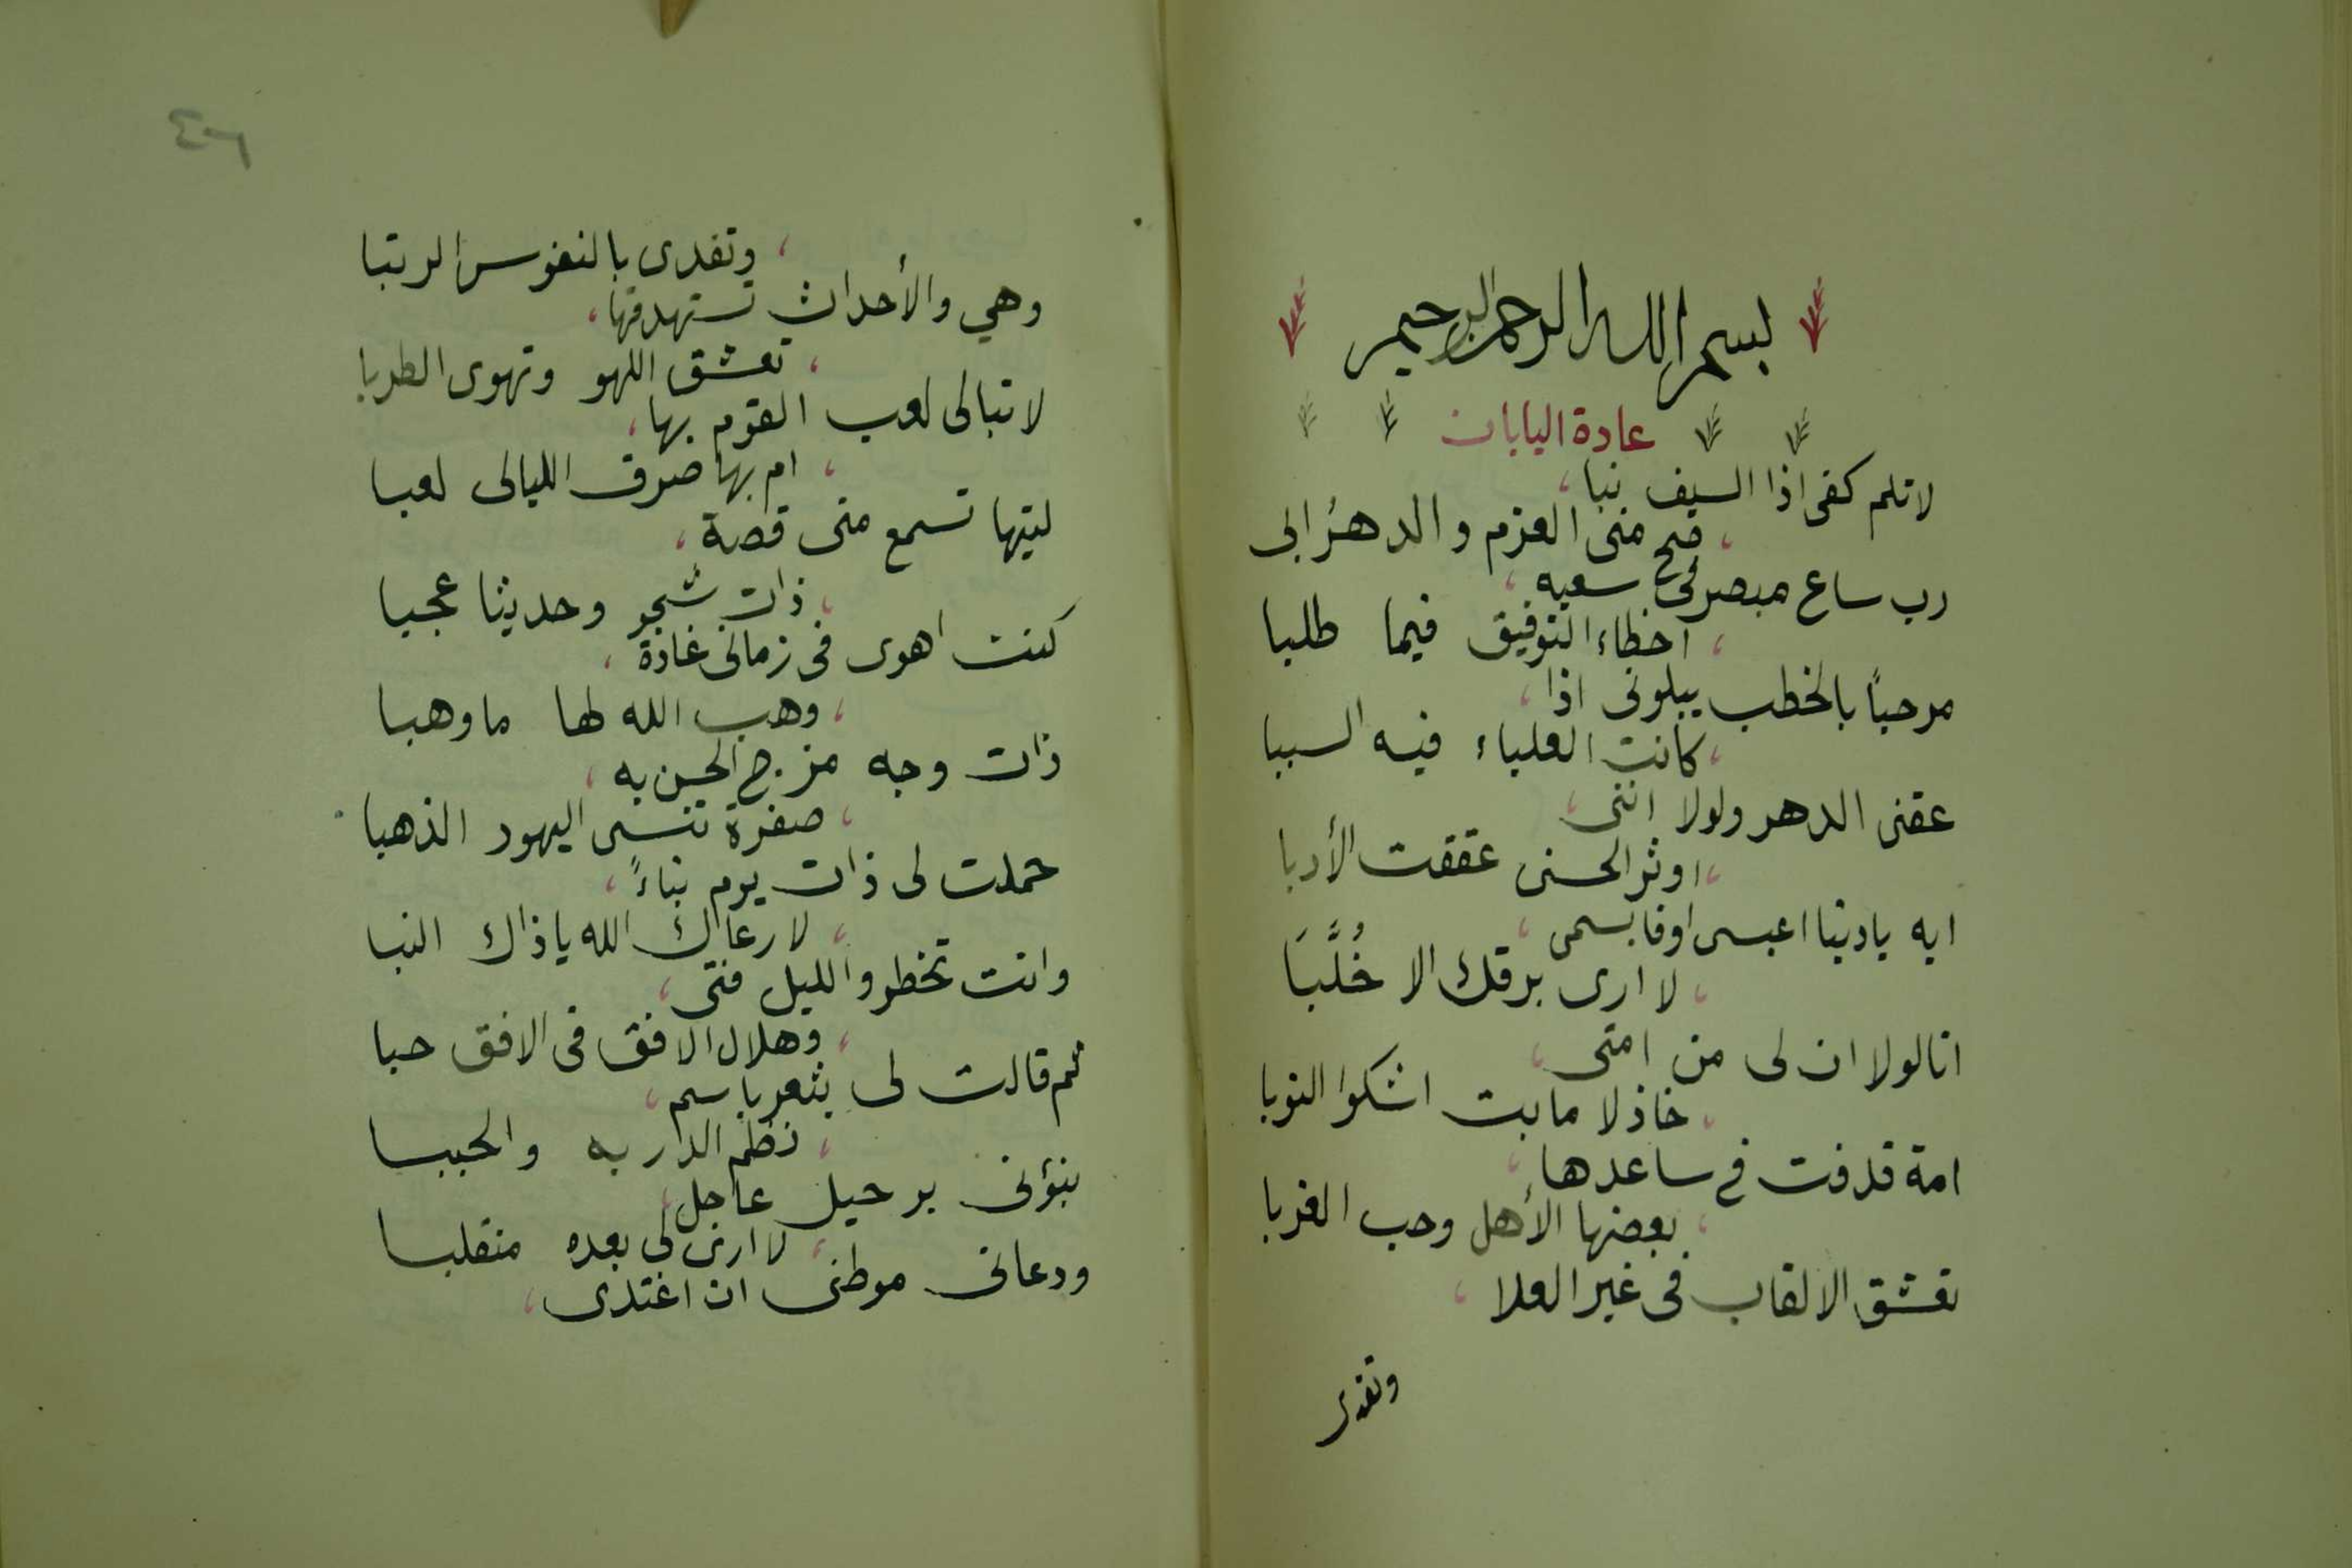 بسم الله الرحمن الرحيم
عادة اليابان
لا تلم كفى اذا السيف نبا،
، صح منى العزم والدهرُ ابى
رب ساع مبصر فى سعيه،
، اخطاء التوفيق فيما طلبا
مرحباً بالخطب يبلونى اذا،
، كانت العلياء فيه السببا
عقنى الدهر ولولا اننى،
، اوثر الحسنى عققت الأدبا
ايه يا دنيا اعبسى او فابسمى،
، لا ارى برقك الا خُلَّبَا
انا لولا ان لى من امتى،
، خاذلا ما بت اشكوا النوبا
امة قد فت فى ساعدها،
، بعضها الأهل وحب الغربا
تعشق الالقاب فى غير العلا،
وتفدى
، وتفدى بالنفوس الرتبا
وهي والأحداث تستهدفها،
، تعشق اللهو وتهوى الطربا
لا تبالى لعب القوم بها،
، ام بها صرف الليالى لعبا
ليتها تسمع منى قصة،
، ذات شجو وحديثا عجبا
كنت اهوى فى زمانى غادة،
، وهب الله لها ما وهبا
ذات وجه مزج الحسن به،
، صفرة تنسى اليهود الذهبا
حملت لى ذات يوم نباءً،
، لا رعاك الله يا ذاك النبا
وانت تخطر والليل فتى،
، وهلال الافق فى الافق حبا
ثم قالت لى بثغر باسم،
، نظم الدر به والحببا
نبؤنى برحيل عاجل،
، لا ارى لى بعده منقلبا
ودعانى موطنى ان اغتدى،